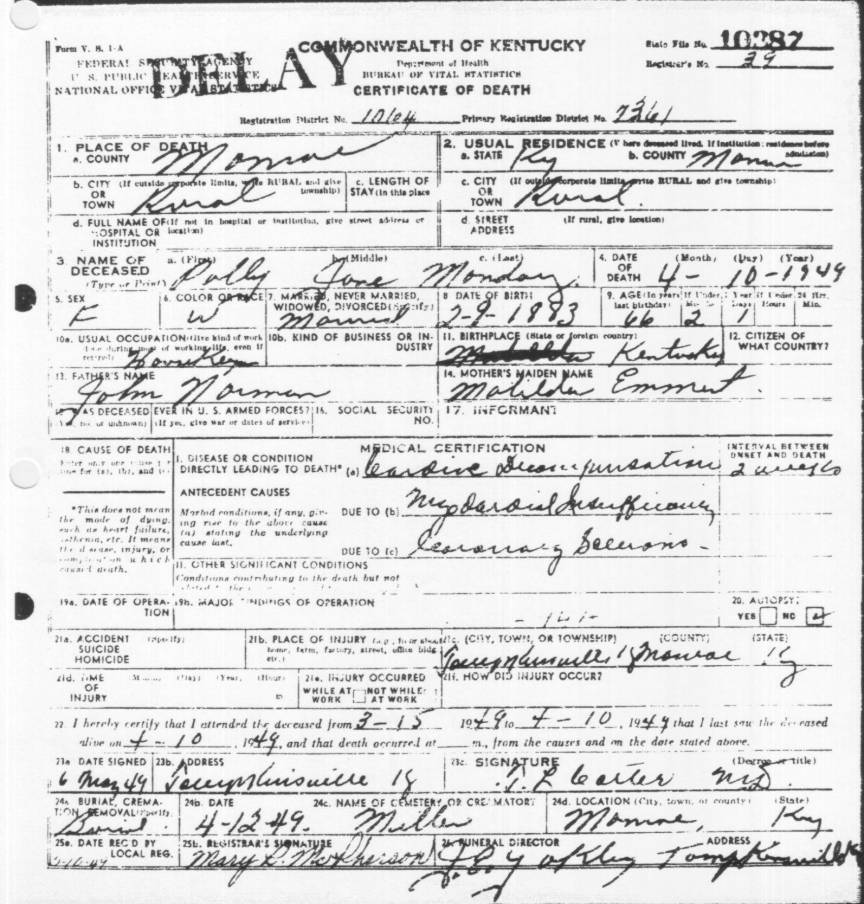 Form V. S. 1-A
COMMONWEALTH OF KENTUCKY
State File No. 10387
FEDERAL SECURITY AGENCY
Department of Health
Registrar's No. 39
U. S. PUBLIC HEALTH SERVICE
BUREAU OF VITAL STATISTICS
NATIONAL OFFICE VITAL STATISTICS
DELAY
CERTIFICATE OF DEATH
Registration District No. 1064 Primary Registration District No. 7361
1. PLACE OF DEATH
a. COUNTY Monroe
2. USUAL RESIDENCE (Where deceased lived. If institution: residence before admission)
a. STATE Ky b. COUNTY Monroe
b. CITY (If outside corporate limits, write RURAL and give township) OR TOWN Rural
c. LENGTH OF STAY (in this place
c. CITY (If outside corporate limits, write RURAL and give township) OR TOWN Rural.
d. FULL NAME OF (If not in hospital or institution, give street address or location) HOSPITAL OR INSTITUTION
d. STREET ADDRESS (If rural, give location)
3. NAME OF DECEASED (Type or Print) a. (First) Polly b. (Middle) Jane c. (Last) Monday.
4. DATE OF DEATH (Month) (Day) (Year) 4-10-1949
5. SEX F
6. COLOR OR RACE W
7. MARRIED, NEVER MARRIED, WIDOWED, DIVORCED (Specify) Married
8 DATE OF BIRTH 2-9-1883
9. AGE (In years last birthday) 66 2 1
10a. USUAL OCCUPATION (Give kind of work done during most of working life, even if retired) Housekeeper
10b. KIND OF BUSINESS OR INDUSTRY
11. BIRTHPLACE (State or foreign country) Kentucky
12. CITIZEN OF WHAT COUNTRY?
13. FATHER'S NAME John Norman
14. MOTHER'S MAIDEN NAME Matilda Emmert.
15. WAS DECEASED EVER IN U. S. ARMED FORCES? (If yes, give war or dates of service)
16. SOCIAL SECURITY NO.
17. INFORMANT
18 CAUSE OF DEATH
MEDICAL CERTIFICATION
INTERVAL BETWEEN ONSET AND DEATH
I. DISEASE OR CONDITION DIRECTLY LEADING TO DEATH* (a) Cardiac Decompensation 2 weeks
*This does not mean the mode of dying, such as heart failure, asthenia, etc. It means the disease, injury, or complication which caused death.
ANTECEDENT CAUSES
Morbid conditions, if any, giving rise to the above cause (a) stating the underlying cause last.
DUE TO (b) Myocardial Insufficiency
DUE TO (c) Coronary Sclerosis
II. OTHER SIGNIFICANT CONDITIONS
Conditions contributing to the death but not
19a. DATE OF OPERATION
19b. MAJOR FINDINGS OF OPERATION
20. AUTOPSY?
YES NO
21a. ACCIDENT SUICIDE HOMICIDE (Specify)
21b. PLACE OF INJURY (e.g., in or about home, farm, factory, street, office bldg. etc.)
21c. (CITY, TOWN, OR TOWNSHIP) (COUNTY) (STATE)
Tompkinsville Ky Monroe Ky
21d. TIME OF INJURY (Month) (Day) (Year) (Hour) m
21e. INJURY OCCURRED WHILE AT WORK NOT WHILE AT WORK
21f. HOW DID INJURY OCCUR?
22. I hereby certify that I attended the deceased from 3-15 1949 to 4-10, 1949 that I last saw the deceased
alive on 4-10, 1949, and that death occurred at m., from the causes and on the date stated above.
23a DATE SIGNED 6 May 49
23b. ADDRESS Tompkinsville Ky
23c. SIGNATURE (Degree or title) T. L. Carter MD.
24a. BURIAL, CREMATION, REMOVAL (Specify) Burial
24b. DATE 4-12-49.
24c. NAME OF CEMETERY OR CREMATORY Miller
24d. LOCATION (City, town, or county) (State) Monroe, Ky
25a. DATE REC'D BY LOCAL REG.
25b. REGISTRAR'S SIGNATURE Mary L. McPherson
26. FUNERAL DIRECTOR ADDRESS
Yokley Tompkinsville Ky